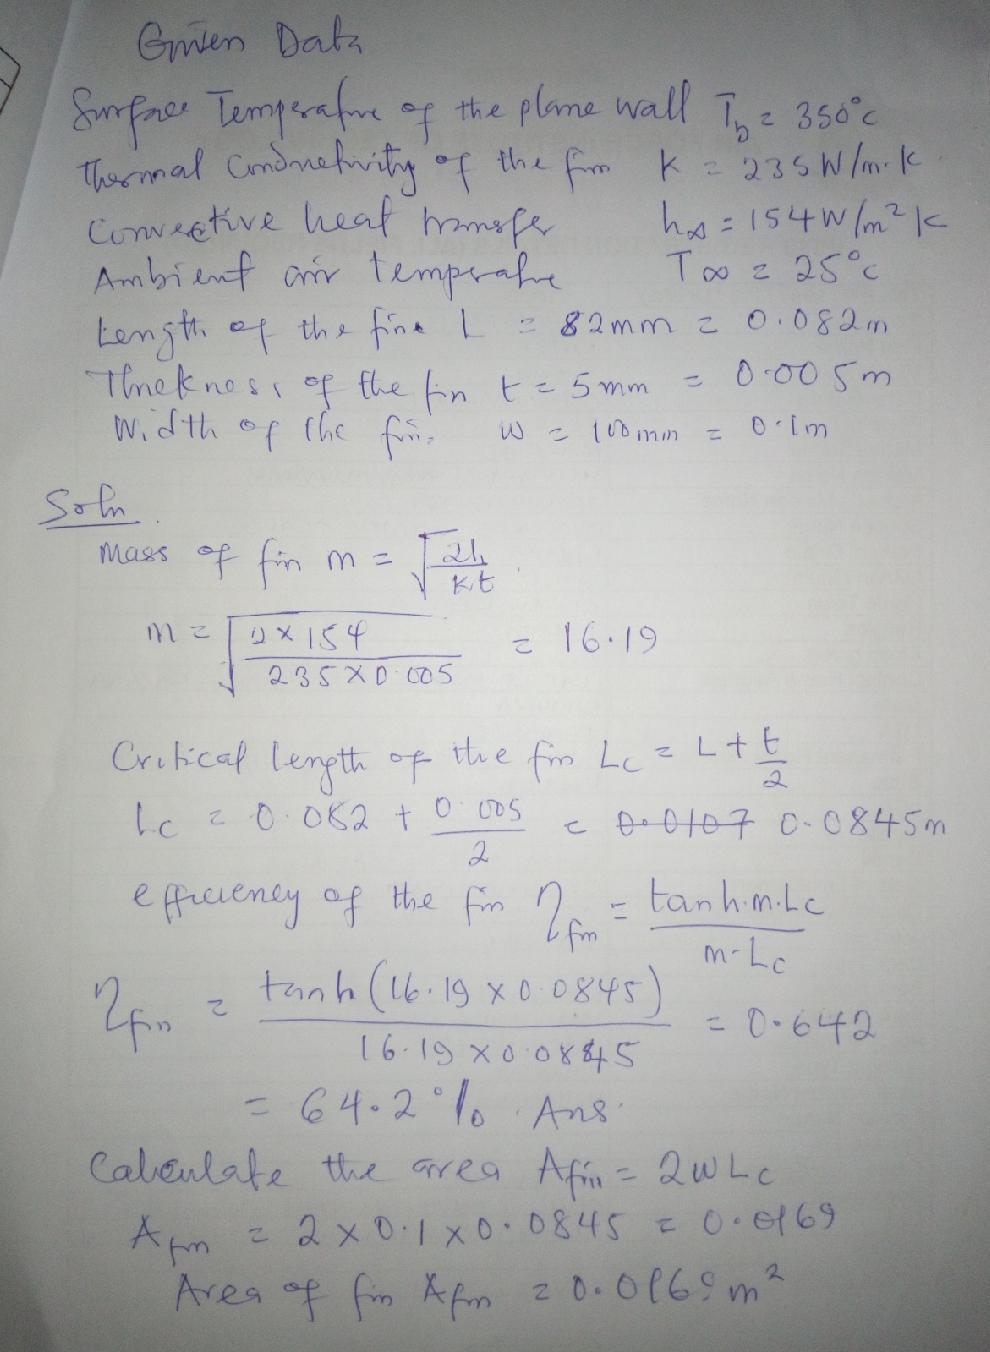 Given Data
Surface Temperature of the plane wall T_b = 350°c
Thermal Conductivity of the fin K = 235 W/m·K
Convective heat transfer h∞ = 154 W/m²K
Ambient air temperature T∞ = 25°c
Length of the fin L = 82mm = 0.082m
Thickness of the fin t = 5mm = 0.005m
Width of the fin. W = 100mm = 0.1m
Soln.
Mass of fin m = √(2h/Kt)
m = √(2×154/235×0.005) = 16.19
Critical length of the fin Lc = L + t/2
Lc = 0.082 + 0.005/2 = 0.0107 0.0845m
efficiency of the fin η_fin = tanh.m.Lc/m.Lc
η_fin = tanh(16.19×0.0845)/16.19×0.0845 = 0.642
= 64.2% Ans.
Calculate the area Afin = 2WLc
Afin = 2×0.1×0.0845 = 0.0169
Area of fin Afin = 0.0169 m²